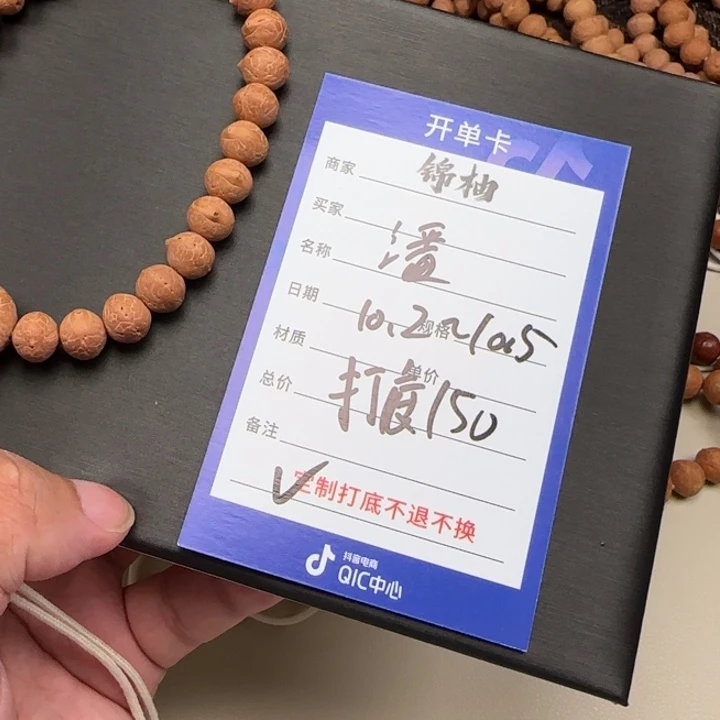 开单卡
商家 锦柚
买家
名称 潘
日期 规格 10.2~10.5
材质 单价
总价 打底150
备注
✓定制打底不退不换
抖音电商
QIC中心